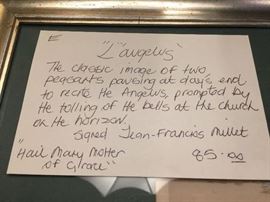 E
"L'angelus"
The classic image of two
peasants pausing at day's end
to recite the Angelus, prompted by
the tolling of the bells at the church
on the horizon.
Signed Jean-Francois Millet
"Hail Mary Mother
of Grace"
85.00